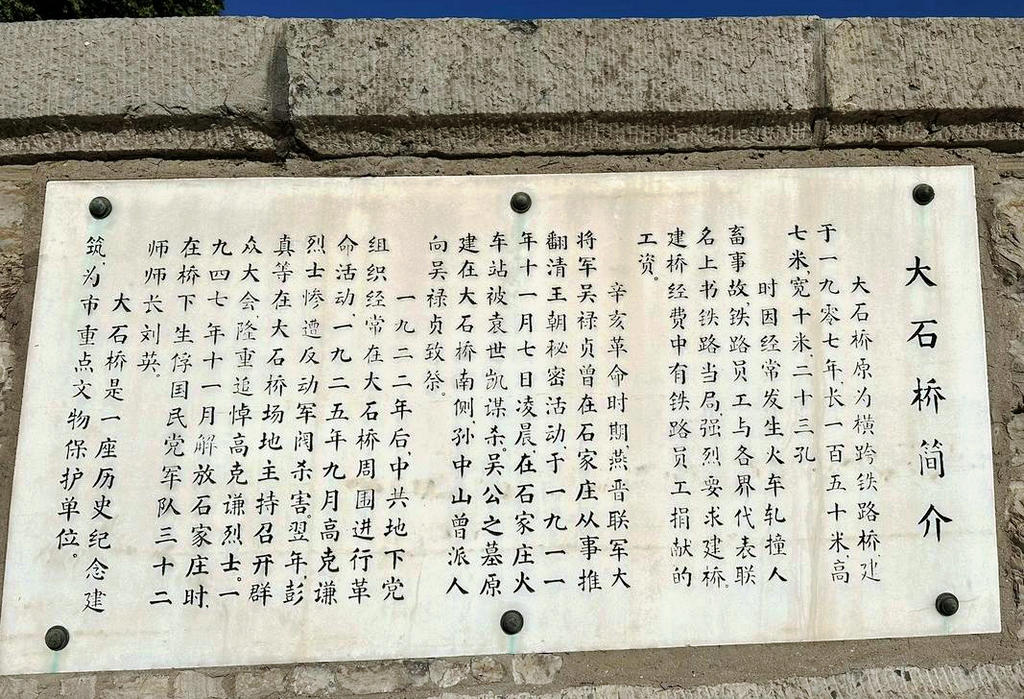 大石桥简介
大石桥原为横跨铁路桥，建
于一九零七年，长一百五十米高
七米，宽十米，二十三孔。
时因经常发生火车轧撞人
畜事故，铁路员工与各界代表联
名上书铁路当局，强烈要求建桥，
建桥经费中有铁路员工捐献的
工资。
辛亥革命时期燕晋联军大
将军吴禄贞曾在石家庄从事推
翻清王朝秘密活动，于一九一一
年十一月七日凌晨，在石家庄火
车站被袁世凯谋杀。吴公之墓原
建在大石桥南侧，孙中山曾派人
向吴禄贞致祭。
一九二二年后，中共地下党
组织经常在大石桥周围进行革
命活动，一九二五年九月高克谦
烈士惨遭反动军阀杀害。翌年，彭
真等在大石桥场地主持召开群
众大会，隆重追悼高克谦烈士。一
九四七年十一月解放石家庄时，
在桥下生俘国民党军队三十二
师师长刘英。
大石桥是一座历史纪念建
筑，为市重点文物保护单位。